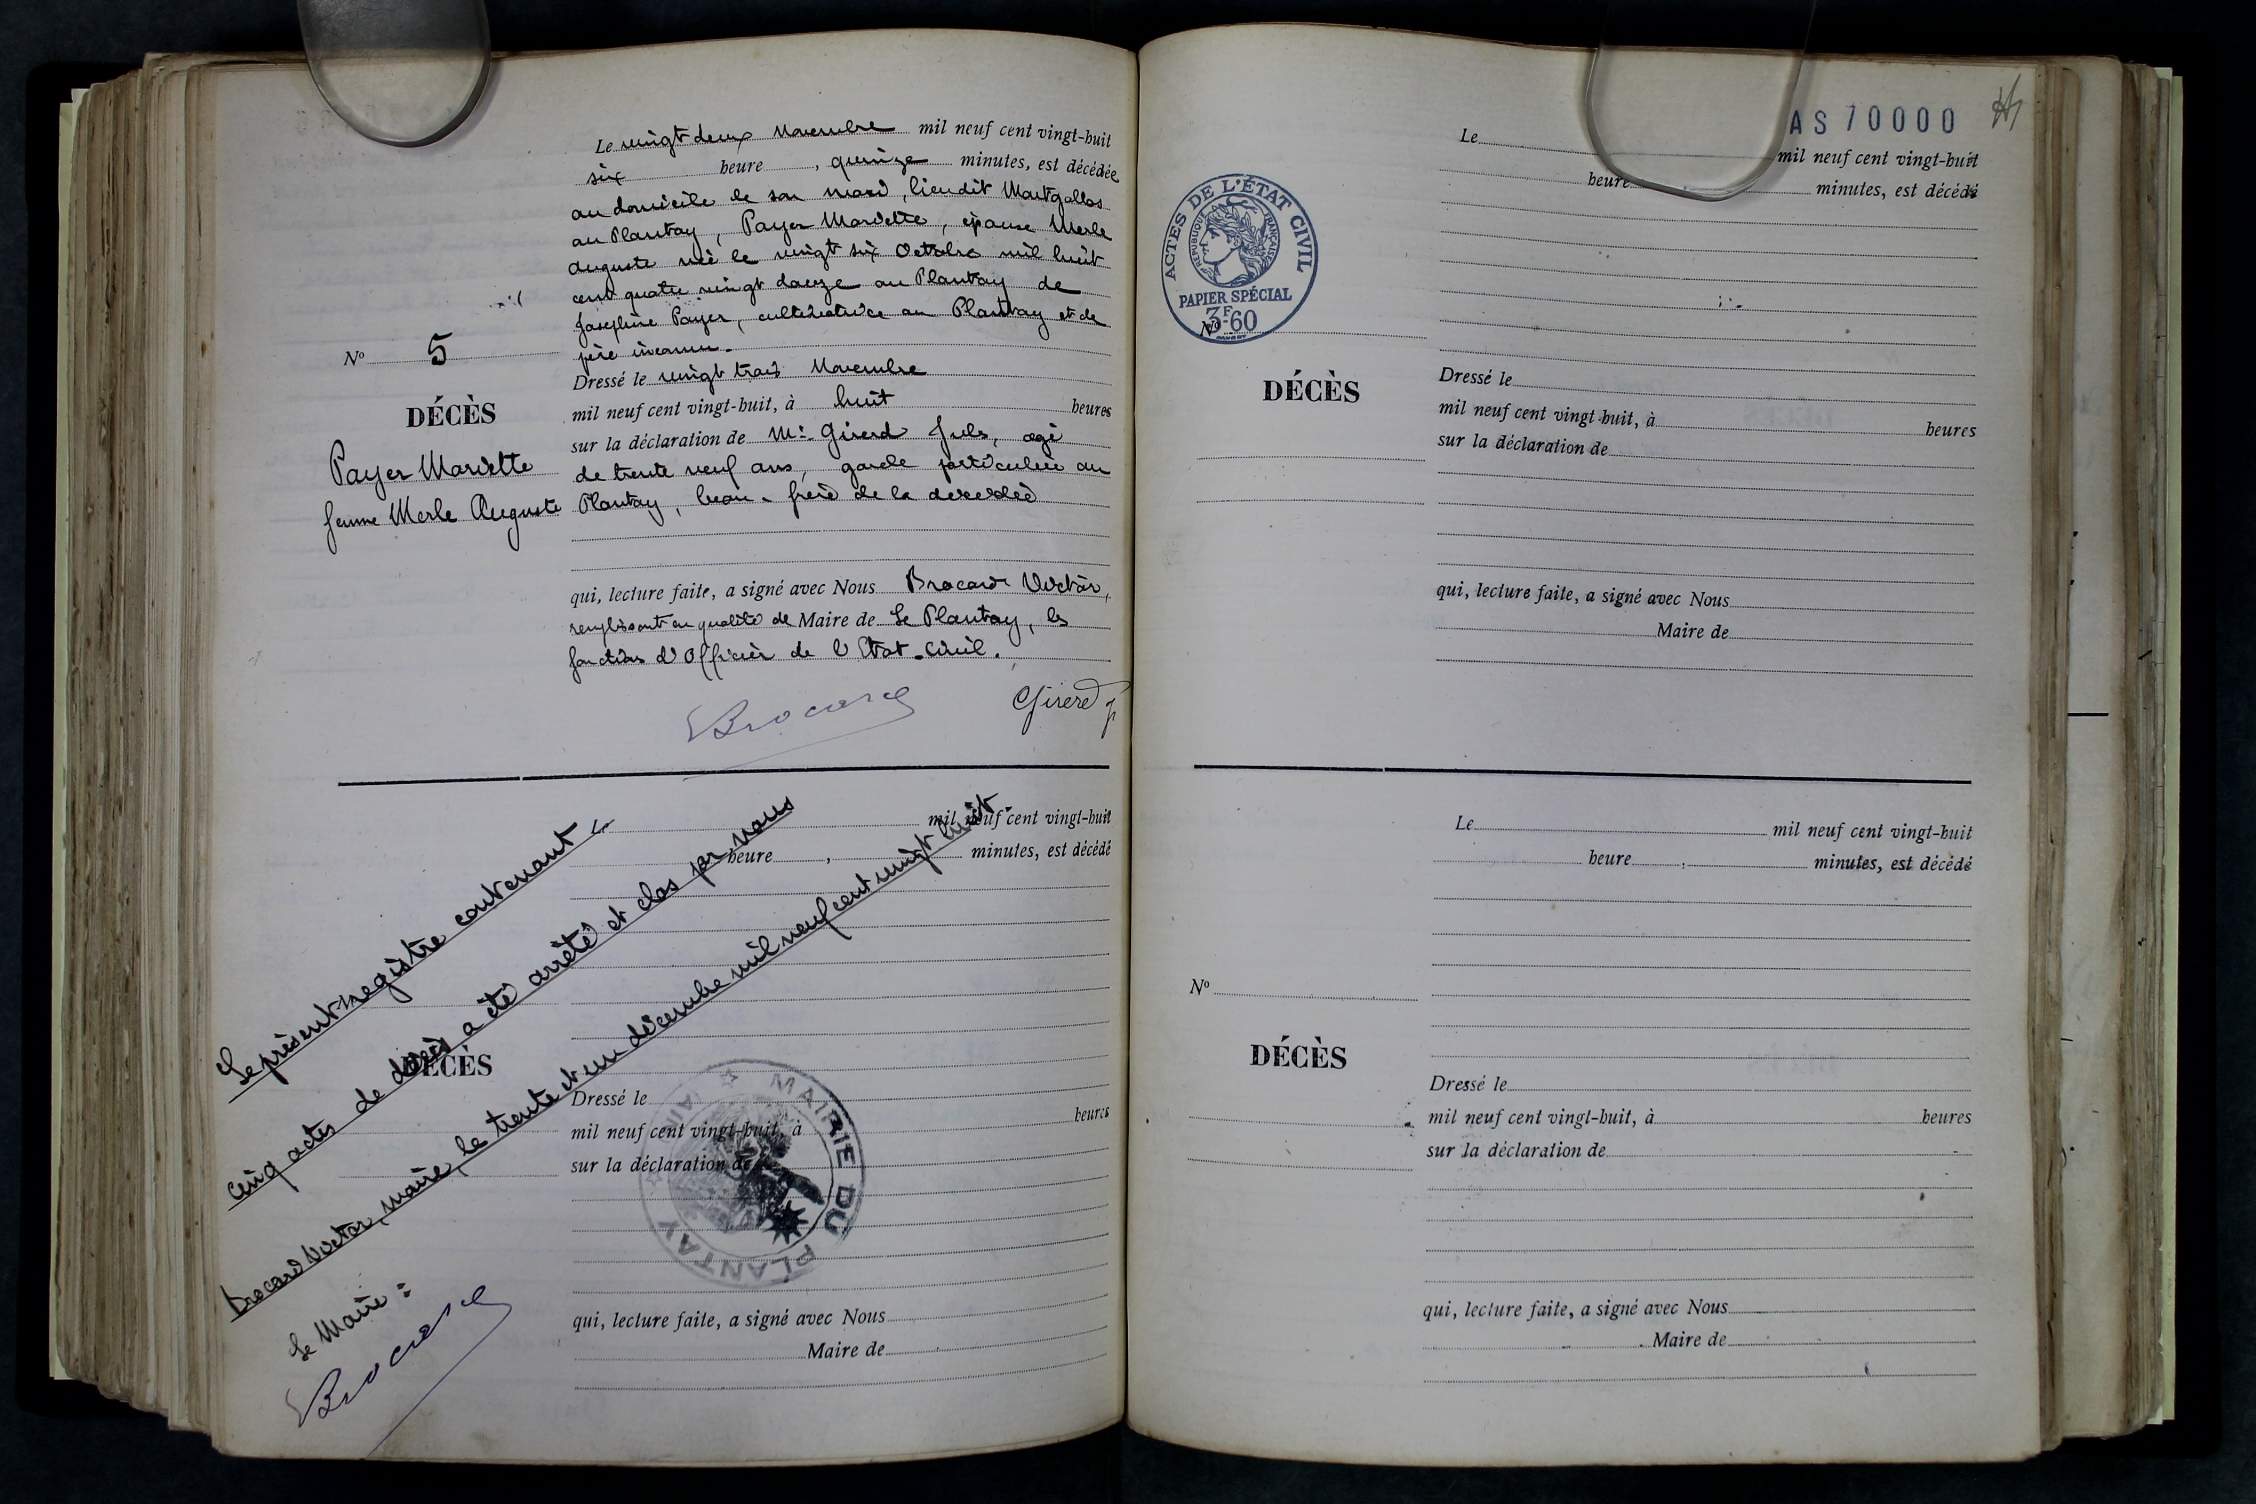 Le vingt deux Novembre mil neuf cent vingt-huit
six heure , quinze minutes, est décédée
au domicile de son mari, lieudit Montgallos
au Plantay, Payer Mariette, épouse Merle
Auguste née le vingt six Octobre mil huit
cent quatre vingt douze au Plantay de
Joséphine Payer, cultivatrice au Plantay et de
père inconnu.
Nº 5
DÉCÈS
Payer Mariette
femme Merle Auguste
Dressé le vingt trois Novembre
mil neuf cent vingt-huit, à huit heures
sur la déclaration de Mr Girerd Jules, agé
de trente neuf ans, garde particulier au
Plantay, beau-frère de la décédée
qui, lecture faite, a signé avec Nous Brocard Victor,
remplissant en qualité de Maire de Le Plantay, les
fonctions d'Officier de l'Etat-Civil.
Brocard
Girerd J
Le présent registre contenant
cinq actes de décès a été arrêté et clos par nous
Brocard Victor, maire, le trente et un décembre mil neuf cent vingt huit.
Le Maire :
Brocard
mil neuf cent vingt-huit
heure , minutes, est décédé
DÉCÈS
Dressé le
mil neuf cent vingt-huit, à heures
sur la déclaration de
MAIRIE DU PLANTAY
(AIN)
qui, lecture faite, a signé avec Nous
Maire de
AS 70000
Le mil neuf cent vingt-huit
heure minutes, est décédé
ACTES DE L'ÉTAT CIVIL
RÉPUBLIQUE FRANÇAISE
PAPIER SPÉCIAL
3F60
Nº
DÉCÈS
Dressé le
mil neuf cent vingt-huit, à heures
sur la déclaration de
qui, lecture faite, a signé avec Nous
Maire de
Le mil neuf cent vingt-huit
heure , minutes, est décédé
Nº
DÉCÈS
Dressé le
mil neuf cent vingt-huit, à heures
sur la déclaration de
qui, lecture faite, a signé avec Nous
Maire de